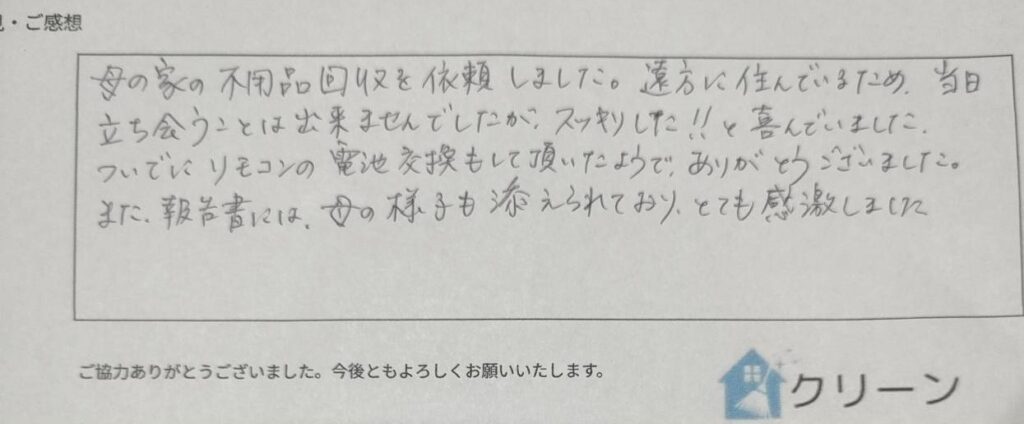 見・ご感想
母の家の不用品回収を依頼しました。遠方に住んでいるため、当日
立ち会うことは出来ませんでしたが、スッキリした!!と喜んでいました。
ついでにリモコンの電池交換もして頂いたようで、ありがとうございました。
また、報告書には、母の様子も添えられており、とても感激しました
ご協力ありがとうございました。今後ともよろしくお願いいたします。
クリーン